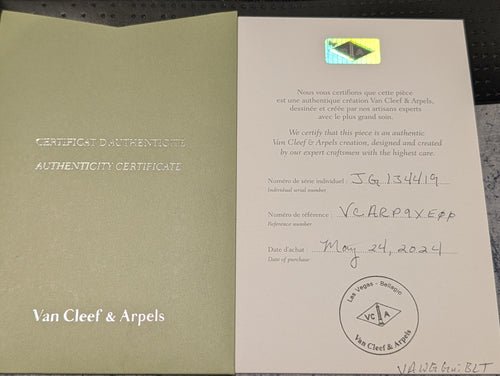 CERTIFICAT D'AUTHENTICITÉ
AUTHENTICITY CERTIFICATE
Van Cleef & Arpels
Nous vous certifions que cette pièce
est une authentique création Van Cleef & Arpels,
dessinée et créée par nos artisans experts
avec le plus grand soin.
We certify that this piece is an authentic
Van Cleef & Arpels creation, designed and created
by our expert craftsmen with the highest care.
Numéro de série individuel : JG134419
Individual serial number
Numéro de référence : VCARP9XE00
Reference number
Date d'achat : May 24, 2024
Date of purchase
Las Vegas - Bellagio
VC A
Van Cleef & Arpels